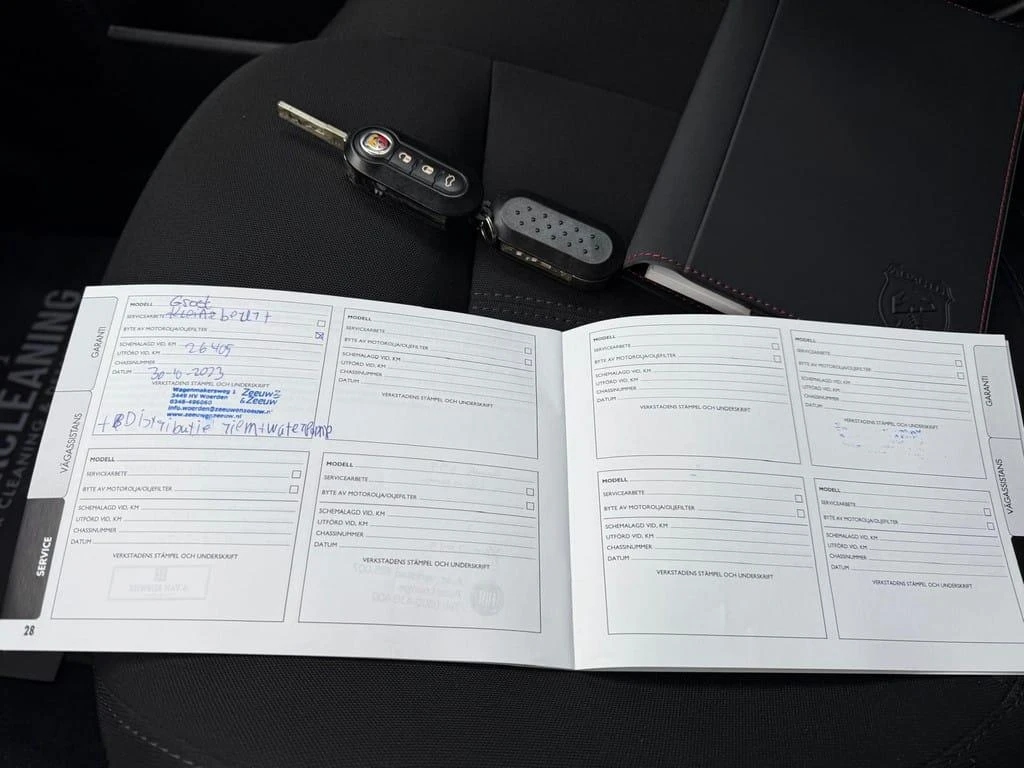 CLEANING
CLEANING &
ABARTH
GARANTI
VÄGASSISTANS
SERVICE
28
MODELL Groot
SERVICEARBETE beurt
BYTE AV MOTOROLJA/OLJEFILTER
SCHEMALAGD VID, KM 26409
UTFÖRD VID, KM
CHASSINUMMER
DATUM 30-10-2023
VERKSTADENS STÄMPEL OCH UNDERSKRIFT
Wagenmakersweg 1
3449 HV Woerden
0348-496060
info.woerden@zeeuwenzeeuw.nl
www.zeeuwenzeeuw.nl
Zeeuw
& Zeeuw
+ Distributie riem + waterpomp
MODELL
SERVICEARBETE
BYTE AV MOTOROLJA/OLJEFILTER
SCHEMALAGD VID, KM
UTFÖRD VID, KM
CHASSINUMMER
DATUM
VERKSTADENS STÄMPEL OCH UNDERSKRIFT
MODELL
SERVICEARBETE
BYTE AV MOTOROLJA/OLJEFILTER
SCHEMALAGD VID, KM
UTFÖRD VID, KM
CHASSINUMMER
DATUM
VERKSTADENS STÄMPEL OCH UNDERSKRIFT
MODELL
SERVICEARBETE
BYTE AV MOTOROLJA/OLJEFILTER
SCHEMALAGD VID, KM
UTFÖRD VID, KM
CHASSINUMMER
DATUM
VERKSTADENS STÄMPEL OCH UNDERSKRIFT
MODELL
SERVICEARBETE
BYTE AV MOTOROLJA/OLJEFILTER
SCHEMALAGD VID, KM
UTFÖRD VID, KM
CHASSINUMMER
DATUM
VERKSTADENS STÄMPEL OCH UNDERSKRIFT
MODELL
SERVICEARBETE
BYTE AV MOTOROLJA/OLJEFILTER
SCHEMALAGD VID, KM
UTFÖRD VID, KM
CHASSINUMMER
DATUM
VERKSTADENS STÄMPEL OCH UNDERSKRIFT
MODELL
SERVICEARBETE
BYTE AV MOTOROLJA/OLJEFILTER
SCHEMALAGD VID, KM
UTFÖRD VID, KM
CHASSINUMMER
DATUM
VERKSTADENS STÄMPEL OCH UNDERSKRIFT
MODELL
SERVICEARBETE
BYTE AV MOTOROLJA/OLJEFILTER
SCHEMALAGD VID, KM
UTFÖRD VID, KM
CHASSINUMMER
DATUM
VERKSTADENS STÄMPEL OCH UNDERSKRIFT
GARANTI
VÄGASSISTANS